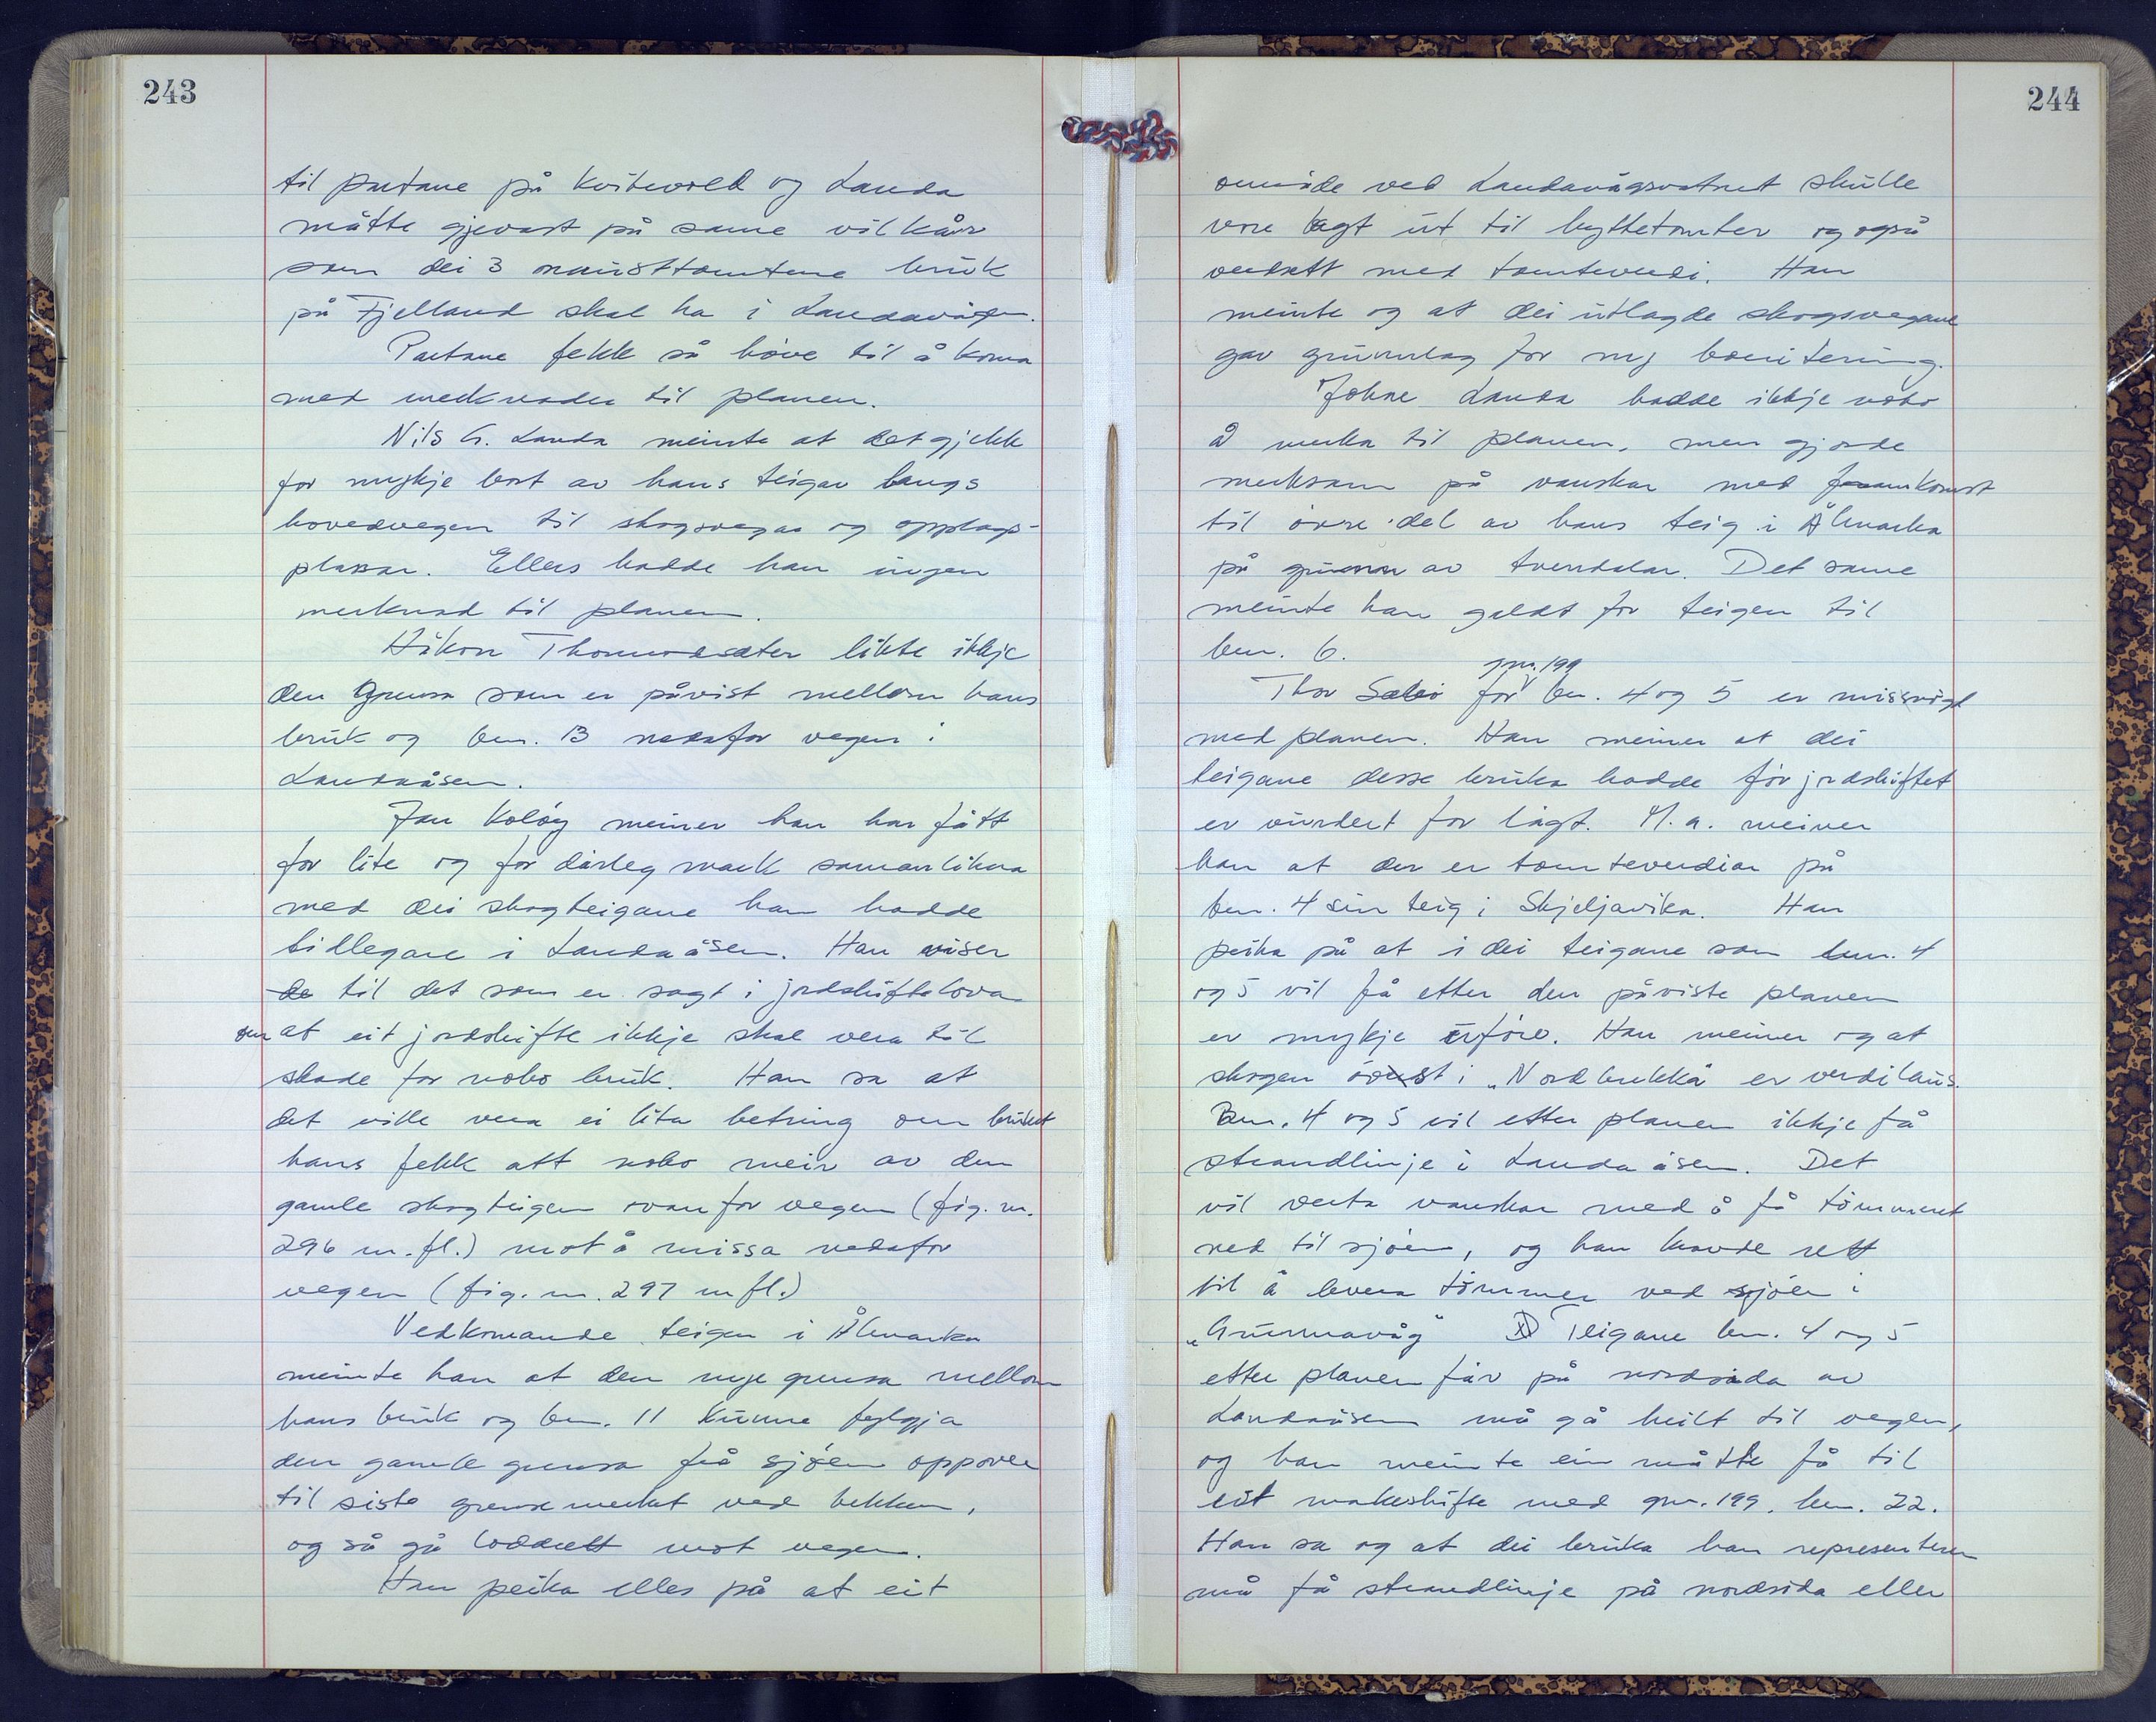 243
til partane på Kvitevold og Landa
måtte gjevast på same vilkår
som dei 3 nausttomtene bruk
på Fjelland skal ha i Landavågen.
Partane fekk så høve til å koma
med merknader til planen.
Nils G. Landa meinte at det gjekk
for mykje bort av hans teigar langs
hovedvegen til skogsvegar og opplags-
plassar. Ellers hadde han ingen
merknad til planen.
Håkon Thormodsæter likte ikkje
den grensa som er påvist mellom hans
bruk og bnr. 13 nedafor vegen i
Landaåsen.
Jan Koløy meiner han har fått
for lite og for dårleg mark samanlikna
med dei skogteigane han hadde
tidlegare i Landaåsen. Han viser
de til det som er sagt i jordskiftelova
om at eit jordskifte ikkje skal vera til
skade for noko bruk. Han sa at
det ville vera ei lita betring om bruket
hans fekk att noko meir av den
gamle skogteigen ovanfor vegen (fig. nr.
296 m.fl.) mot å missa nedafor
vegen (fig. nr. 297 m fl.)
Vedkomande teigen i Ålmarka
meinte han at den nye grensa mellom
hans bruk og bnr. 11 kunne fylgja
den gamle grensa frå sjøen oppover
til siste grensemerket ved bekken,
og så gå loddrett mot vegen.
Han peika elles på at eit
244
område ved Landavågsvatnet skulle
vore lagt ut til hyttetomter og også
verdsett med tomteverdi. Han
meinte og at dei utlagde skogsvegane
gav grunnlag for ny bonitering.
Johne Landa hadde ikkje noko
å merka til planen, men gjorde
merksam på vanskar med framkomst
til øvre del av hans teig i Ålmarka
på grunn av tverrdalar. Det same
meinte han galdt for teigen til
bnr. 6.
Thor Sæbø for gnr. 199 bnr. 4 og 5 er misnøgd
med planen. Han meiner at dei
teigane desse bruka hadde før jordskiftet
er vurdert for lågt. M.a. meiner
han at der er tomteverdiar på
bnr. 4 sin teig i Skjeljavika. Han
peika på at i dei teigane som bnr. 4
og 5 vil få etter den påviste planen
er mykje uføre. Han meiner og at
skogen øvst i „Nordbrekkå" er verdilaus.
Bnr. 4 og 5 vil etter planen ikkje få
strandlinje i Landaåsen. Det
vil verta vanskar med å få tømmeret
ned til sjøen, og han kravde rett
til å levera tømmer ved sjøen i
„Grunnavåg" Teigane bnr. 4 og 5
etter planen får på nordsida av
Landaåsen må gå heilt til vegen,
og han meinte ein måtte få til
eit makeskifte med gnr. 199, bnr. 22.
Han sa og at dei bruka han representerer
må få strandlinje på nordsida eller